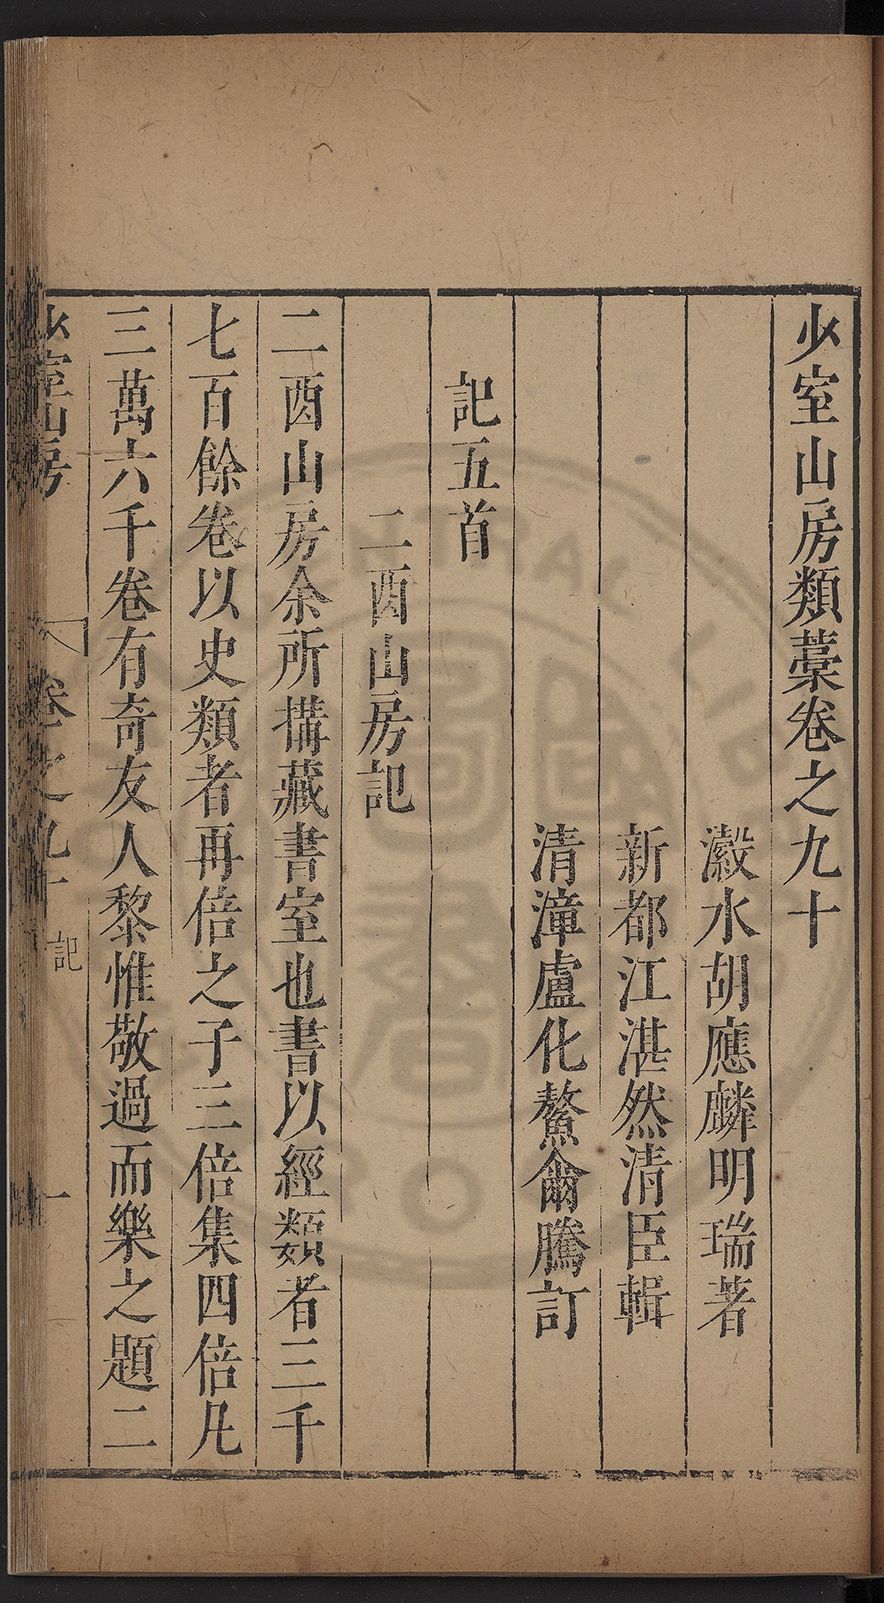 少室山房類藁卷之九十
瀫水胡應麟明瑞著
新都江湛然清臣輯
清漳盧化鰲侖騰訂
記五首
二酉山房記
二酉山房余所搆藏書室也書以經類者三千
七百餘卷以史類者再倍之子三倍集四倍凡
三萬六千卷有奇友人黎惟敬過而樂之題二
少室山房
卷之九十
記
一